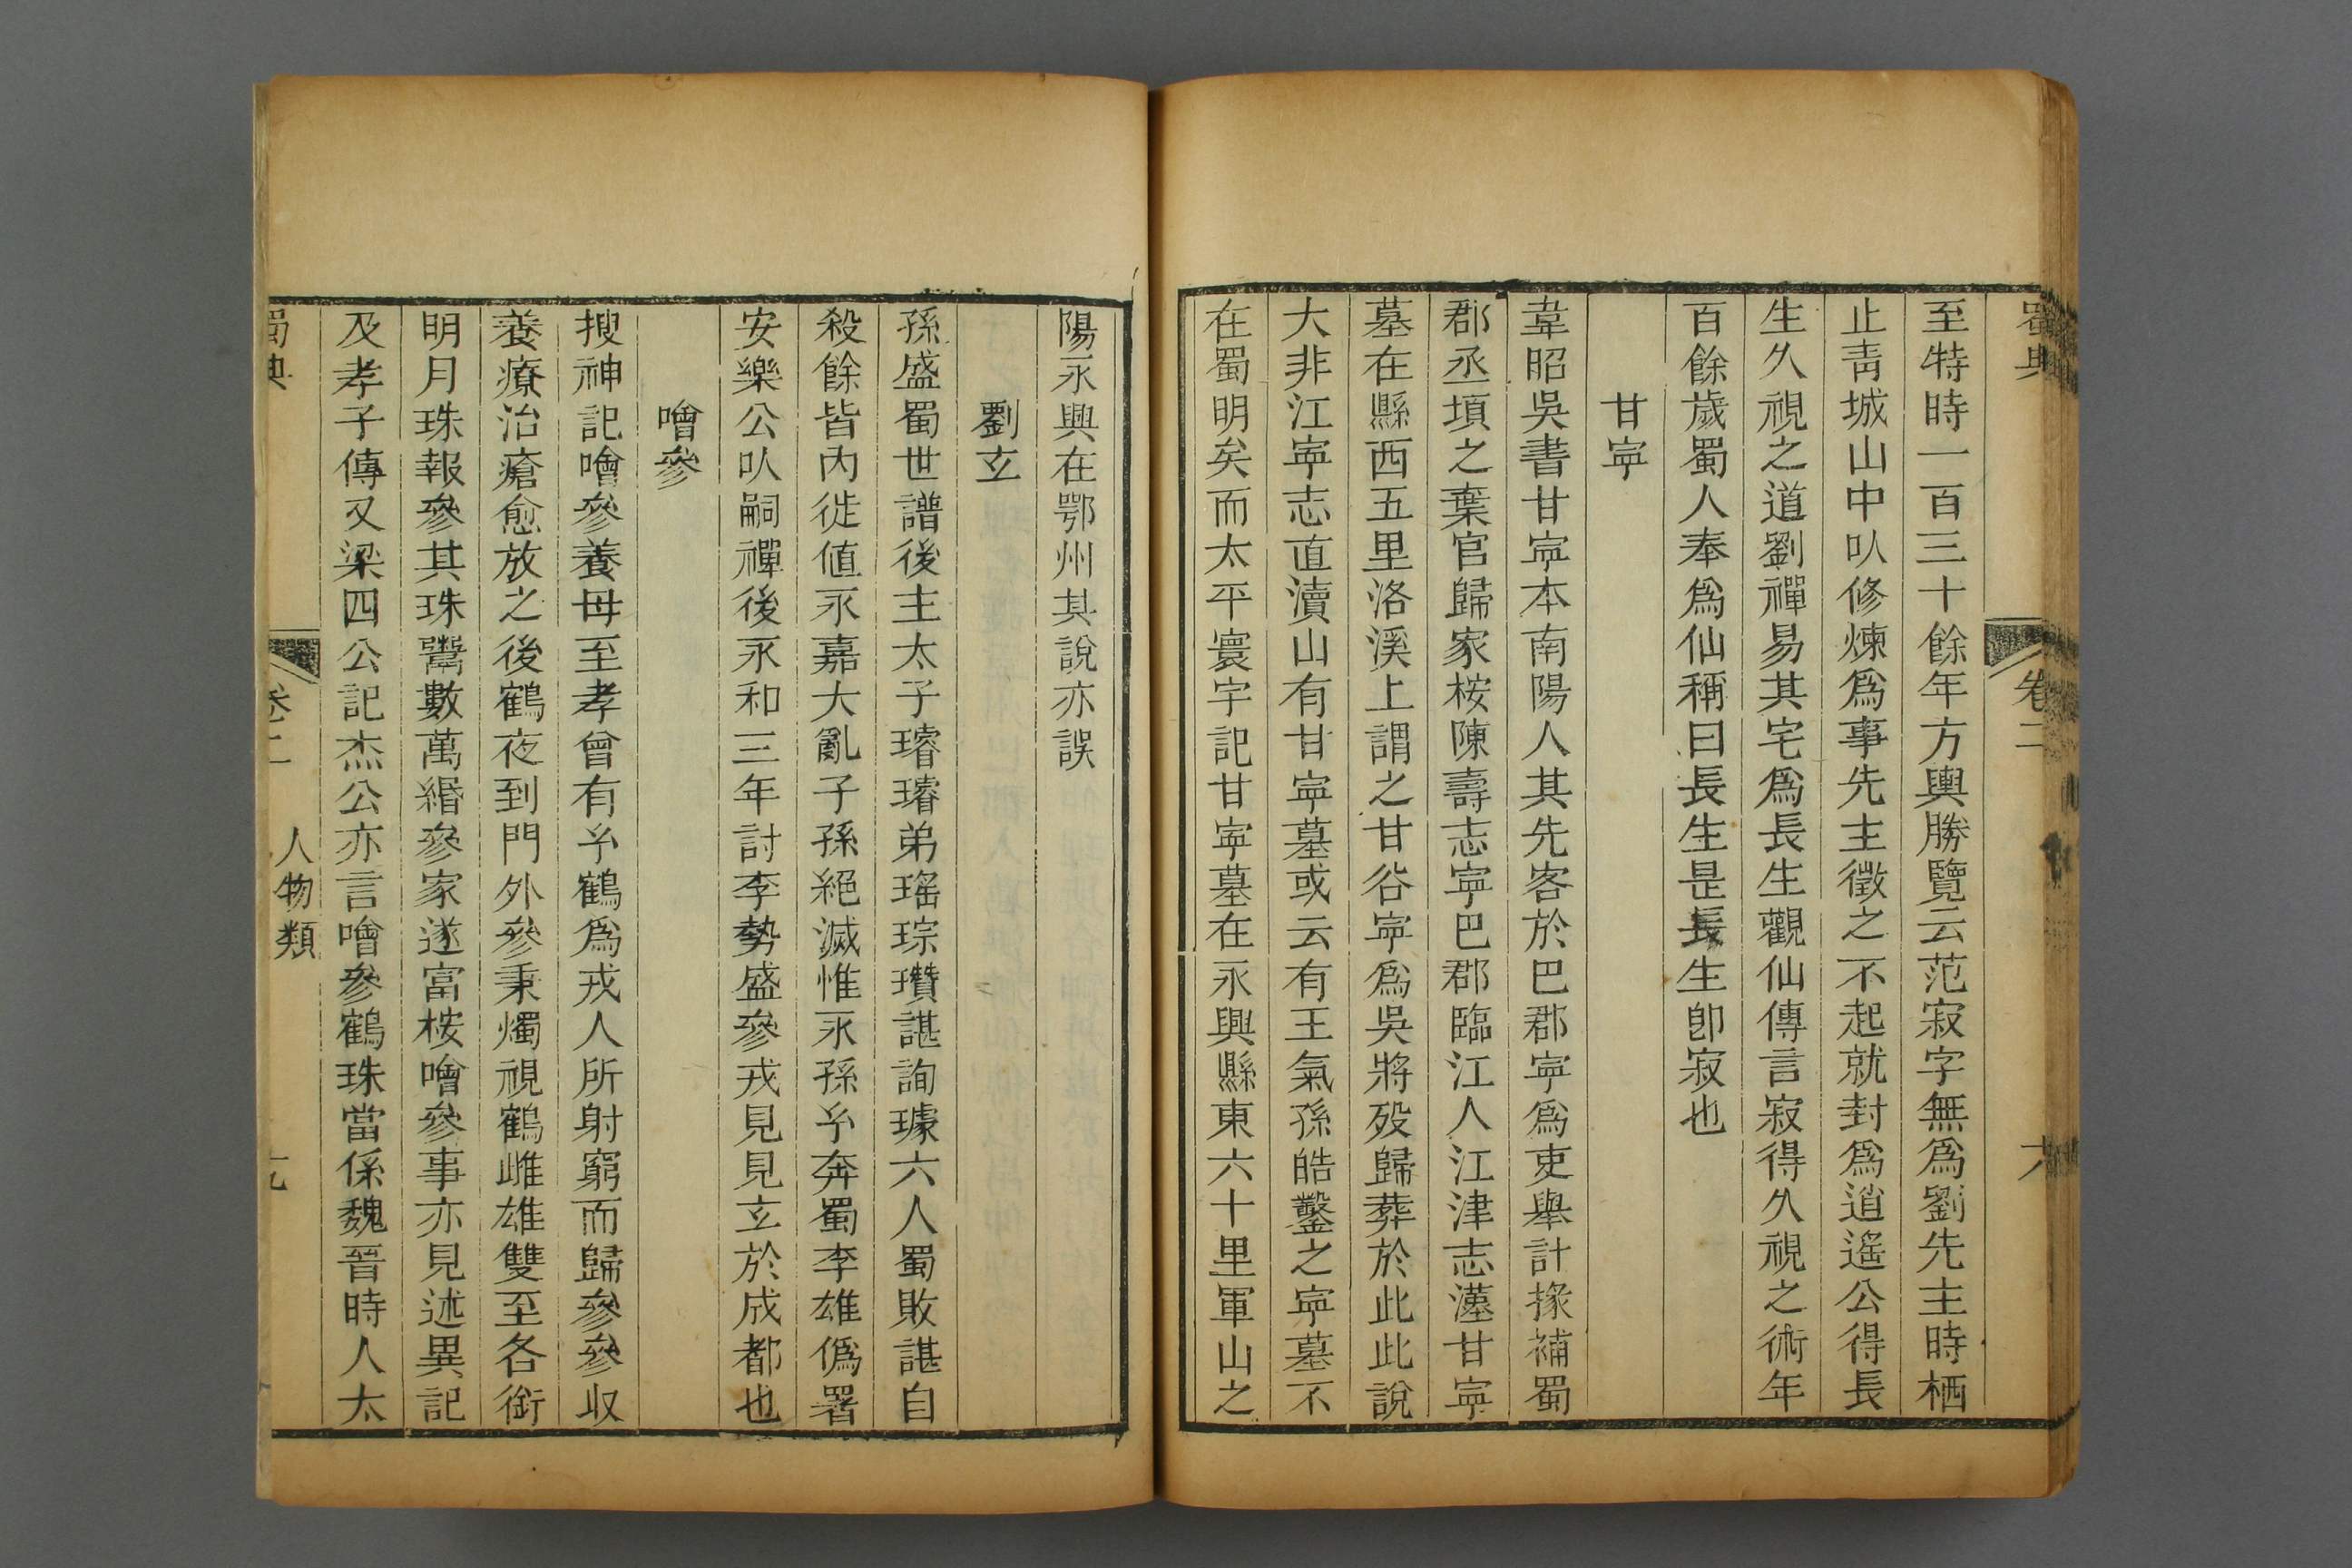 蜀典 卷二
至特時一百三十餘年方輿勝覽云范寂字無為劉先主時栖
止靑城山中㕥修煉為事先主徵之不起就封為逍遙公得長
生久視之道劉禪易其宅為長生觀仙傳言寂得久視之術年
百餘歲蜀人奉為仙稱曰長生是長生卽寂也
甘寧
韋昭吳書甘寧本南陽人其先客於巴郡寧為吏舉計掾補蜀
郡丞頃之棄官歸家桉陳壽志寧巴郡臨江人江津志漢甘寧
墓在縣西五里洛溪上謂之甘谷寧為吳將歿歸葬於此此說
大非江寧志直瀆山有甘寧墓或云有王氣孫皓鑿之寧墓不
在蜀明矣而太平寰宇記甘寧墓在永興縣東六十里軍山之
陽永興在鄂州其說亦誤
劉玄
孫盛蜀世譜後主太子璿璿弟瑤琮瓚諶詢璩六人蜀敗諶自
殺餘皆內徙値永嘉大亂子孫絕滅惟永孫玄奔蜀李雄僞署
安樂公㕥嗣禪後永和三年討李勢盛參戎見見玄於成都也
噲參
搜神記噲參養母至孝曾有玄鶴為戎人所射窮而歸參參收
養療治瘡愈放之後鶴夜到門外參秉燭視鶴雌雄雙至各銜
明月珠報參其珠鬻數萬緡參家遂富桉噲參事亦見述異記
及孝子傳又梁四公記杰公亦言噲參鶴珠當係魏晉時人太
蜀典 卷二 人物類